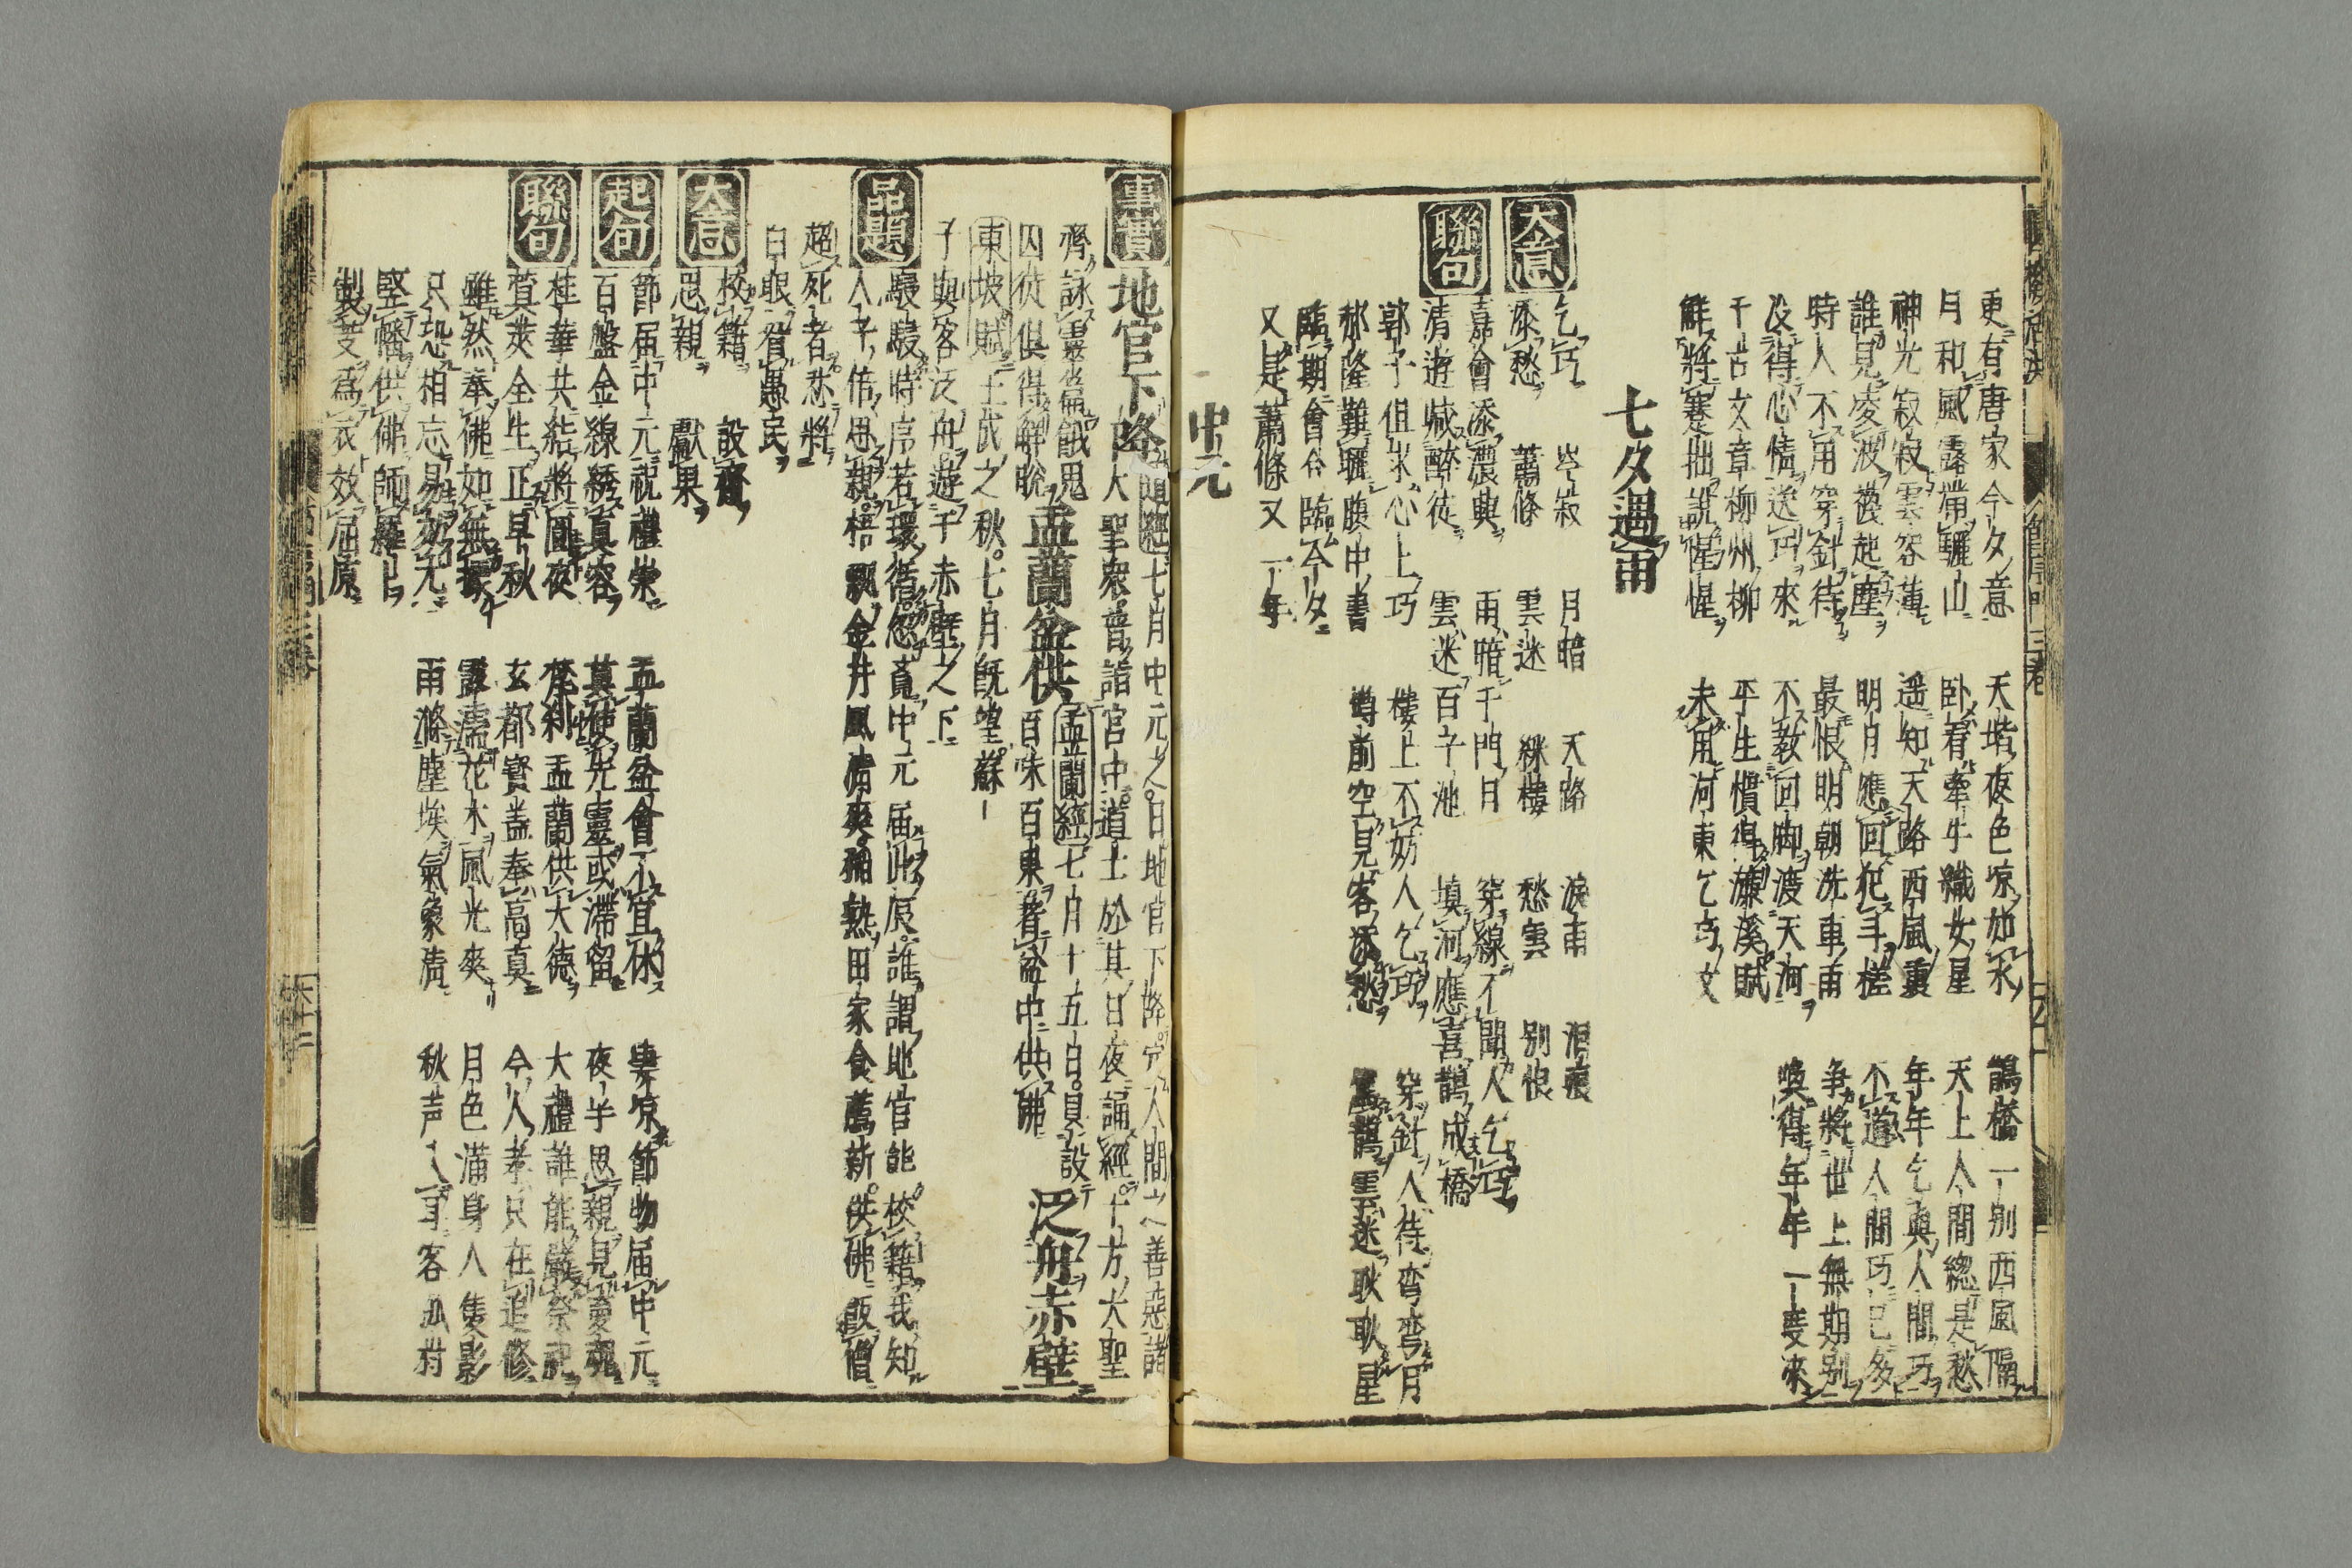 更有唐家今夕意 天堦夜色凉如水 鵲橋一别西風隔
月和風露滯驪山 卧看牽牛織女星 天上人間總是愁
神光寂寂雲容薄 遥知天路西風裏 年年乞與人間巧
誰見凌波襪起塵 明月應回犯斗槎 不道人間巧已多
時人不用穿針待 最恨明朝洗車雨 争將世上無期别
没得心情送巧來 不教回脚渡天河 喚得年年一度來
千古文章柳柳州 平生慣得濂溪賦
觧將蹇拙説惺惺 未用河東乞巧文
七夕遇雨
大意
乞巧 岑寂 月暗 天路 淚雨 泪痕
添愁 蕭條 雲迷 綵樓 愁雲 别恨
聯句
嘉會添濃興 雨暗千門月 穿線不聞人乞巧
清遊緘醉徒 雲迷百子池 填河應喜鵲成橋
郭子但求心上巧 樓上不妨人乞巧 穿針人待弯弯月
郝隆難曬腹中書 罇前空見客添愁 駕鵲雲迷耿耿星
臨期會合臨今夕
又是蕭條又一年
中元
事實
地官下降 道經 七月中元之日地官下降定人間之善惡諸
大聖衆普詣宮中道士於其日夜誦經十方大聖
齊詠靈篇餓鬼 盂蘭盆供 盂蘭經 七月十五日具設
囚徒俱得觧脱 百味百果著盆中供佛 泛舟赤壁
東坡賦 壬戌之秋七月既望蘇
子與客泛舟遊于赤壁之下
品題
駸駸時序若環循忽覔中元届此辰誰謂地官能校籍我知
人子倍思親梧飄金井風清爽稲熟田家食薦新供佛飯僧
超死者恐將
白眼眢愚民
大意
校籍 設齋
思親 獻果
起句
節届中元祝禮崇 盂蘭盆會不宜休 凄凉節物届中元
百盤金線綉真容 莫使先靈或滯留 夜半思親見夢魂
聯句
桂華共結將圓夜 梵刹盂蘭供大德 大禮誰能嚴祭祀
蓂莢全生正早秋 玄都寳盖奉高真 今人孝只在追修
雖然奉佛如無據 露濡花木風光爽 月色滿身人隻影
只恐相忘易効尤 雨滌塵埃氣象清 秋芦入耳客孤村
竪幡供佛師羅卜
製芰為衣效屈原